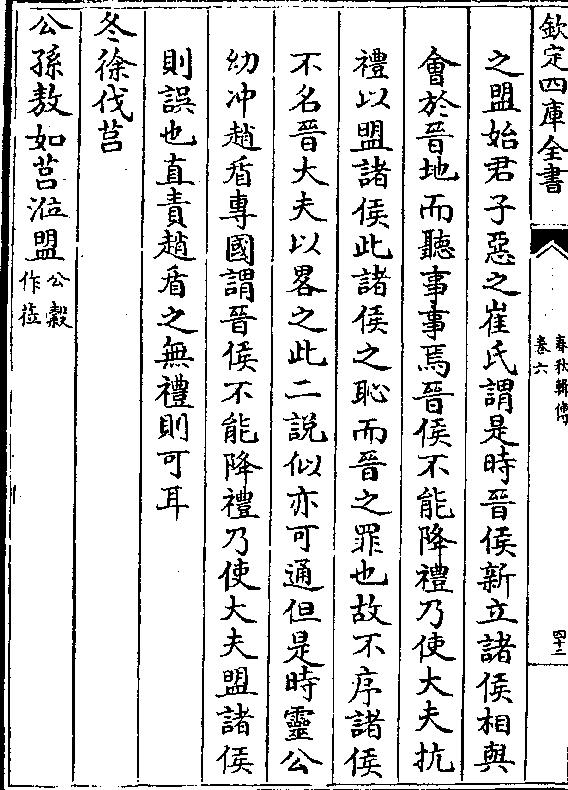 欽定四庫全書
春秋輯傳
卷六
四十二
之盟始君子惡之崔氏謂是時晉侯新立諸侯相與
會於晉地而聽事事焉晉侯不能降禮乃使大夫抗
禮以盟諸侯此諸侯之恥而晉之罪也故不序諸侯
不名晉大夫以畧之此二說似亦可通但是時靈公
幼冲趙盾專國謂晉侯不能降禮乃使大夫盟諸侯
則誤也直責趙盾之無禮則可耳
冬徐伐莒
公孫敖如莒涖盟公穀
作莅